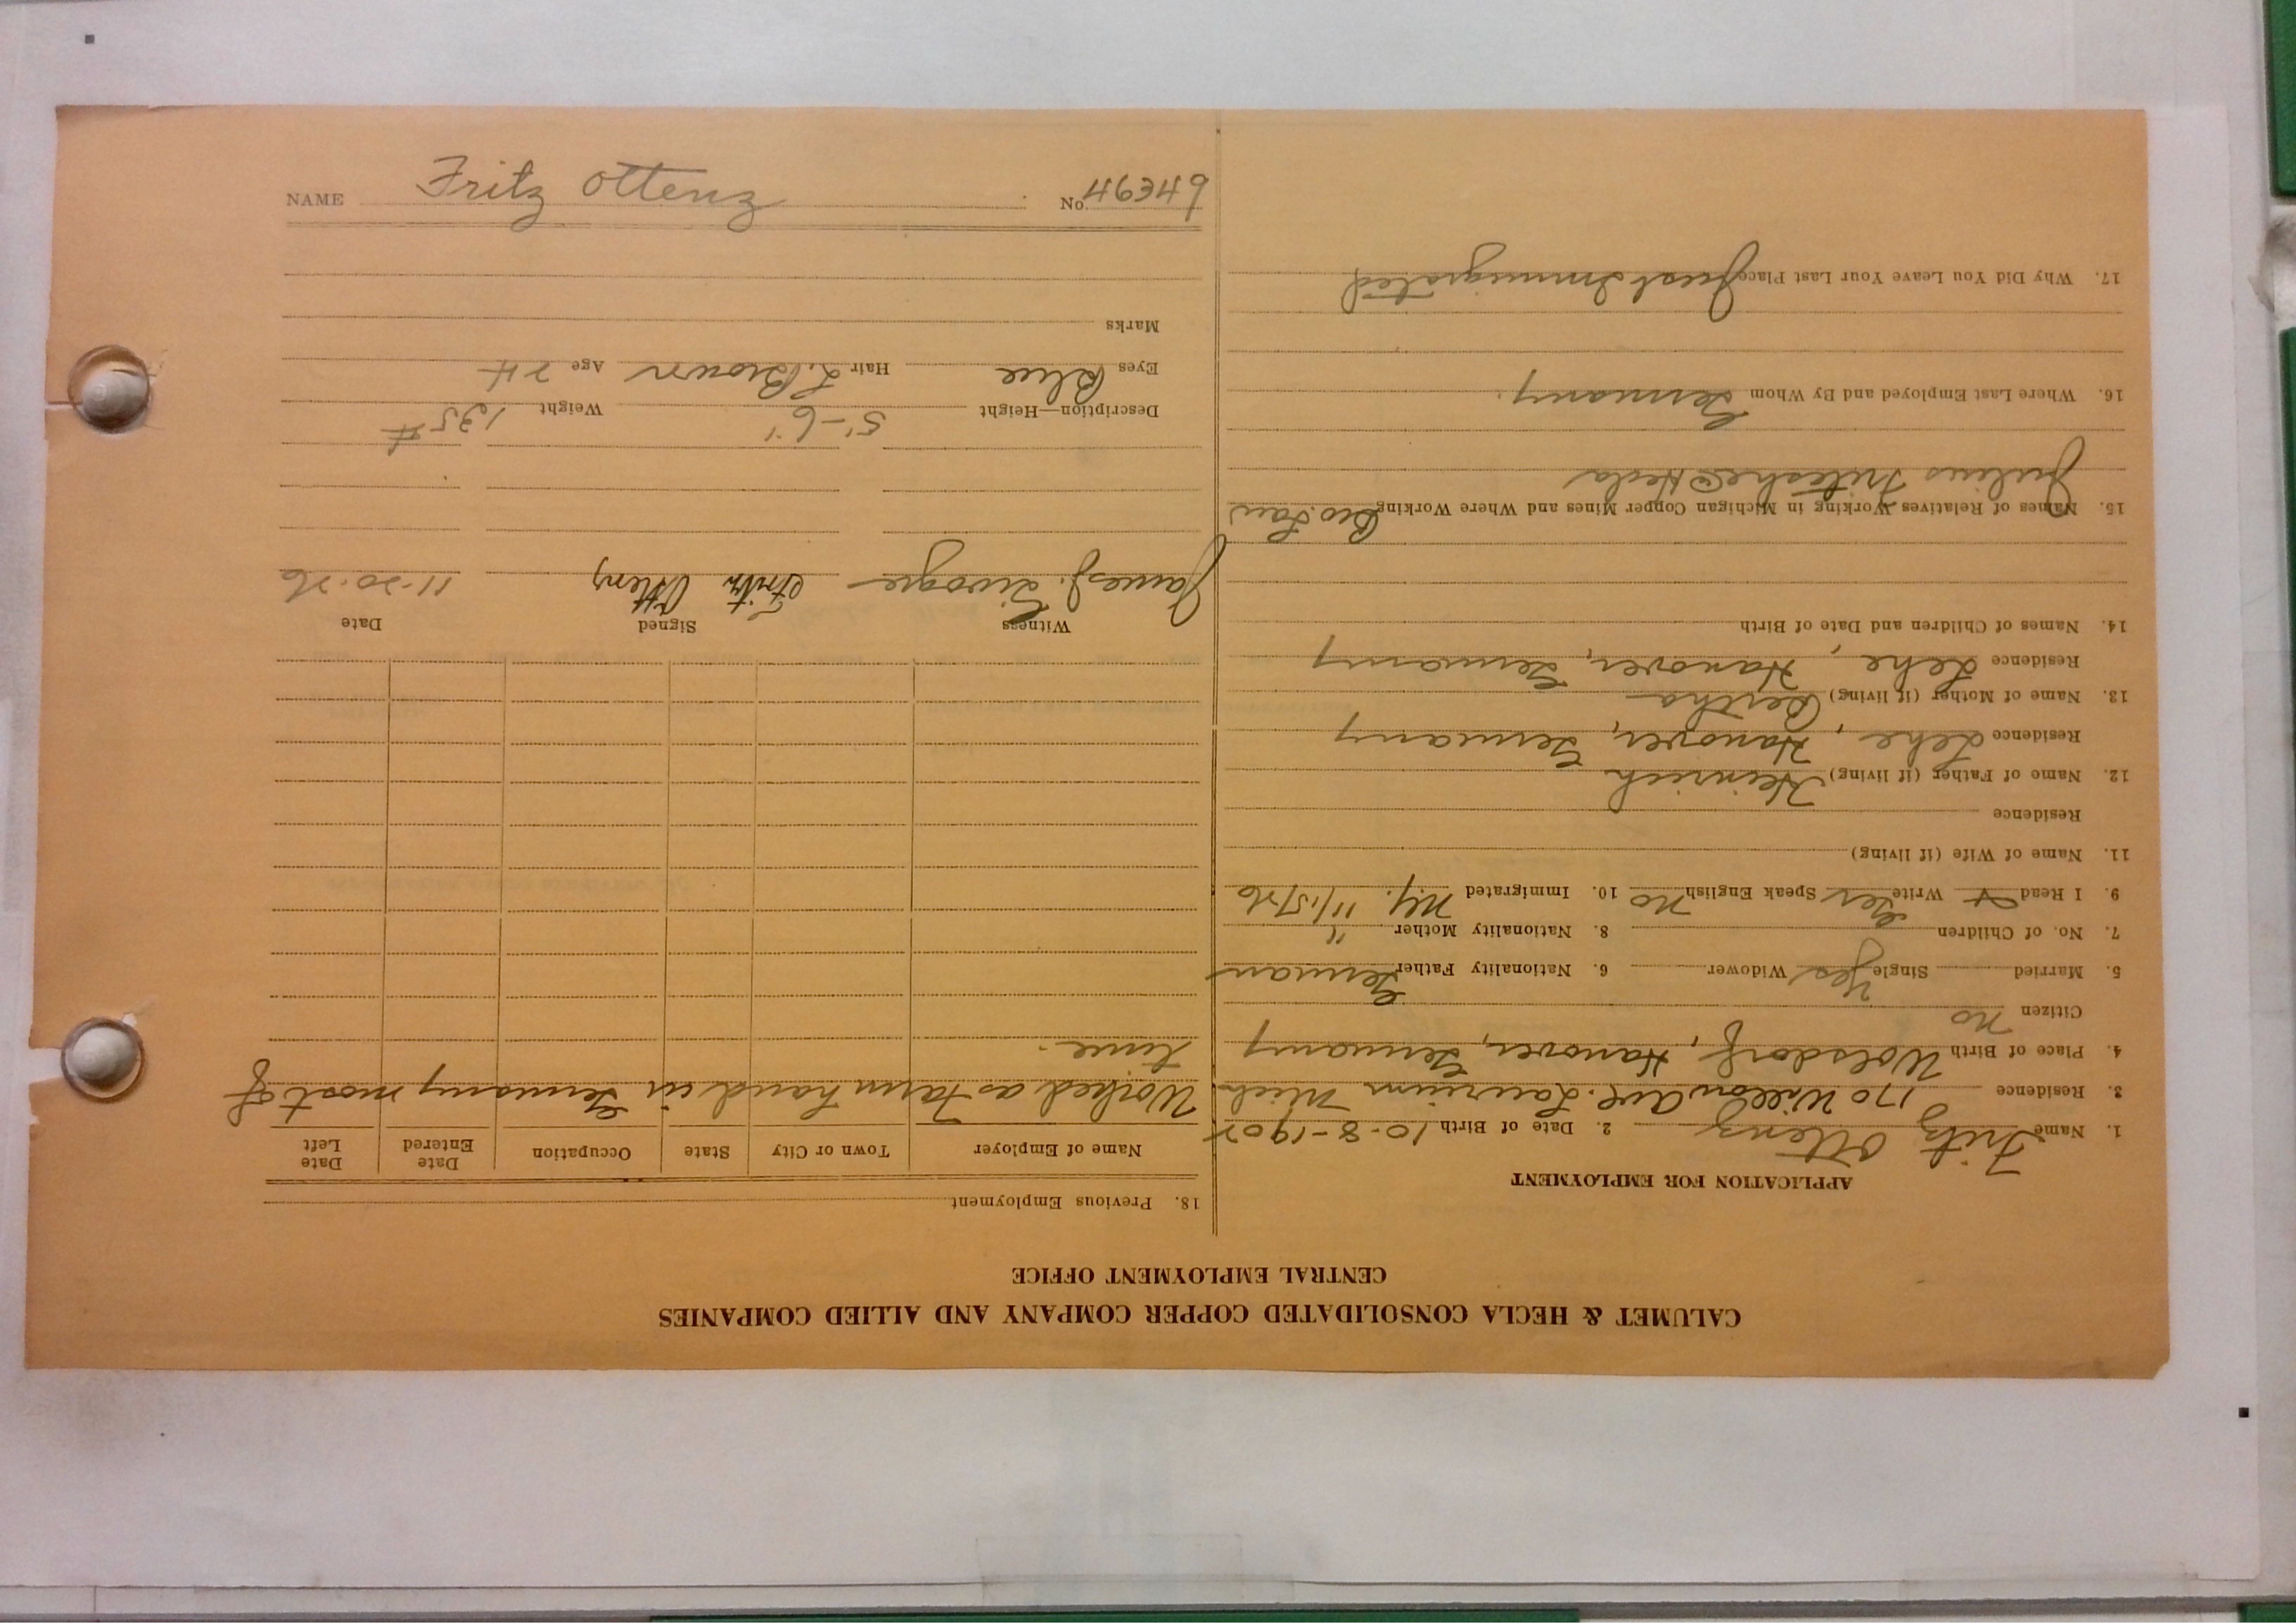 CALUMET & HECLA CONSOLIDATED COPPER COMPANY AND ALLIED COMPANIES
CENTRAL EMPLOYMENT OFFICE
APPLICATION FOR EMPLOYMENT
1. Name Fritz Ottenz 2. Date of Birth 10-8-1902
3. Residence 170 Willow Ave. Laurium Mich
4. Place of Birth Wolsdorf, Hanover, Germany
Citizen no
5. Married Single Yes Widower 6. Nationality Father German
7. No. of Children 8. Nationality Mother "
9. I Read Write Ger Speak English no 10. Immigrated N.Y. 11/15/26
11. Name of Wife (if living)
Residence
12. Name of Father (if living) Heinrich
Residence Lehe, Hanover, Germany
13. Name of Mother (if living) Bertha
Residence Lehe, Hanover, Germany
14. Names of Children and Date of Birth
15. Names of Relatives Working in Michigan Copper Mines and Where Working Bro. Law
Julius Hecla
16. Where Last Employed and By Whom Germany.
17. Why Did You Leave Your Last Place Just Immigrated
18. Previous Employment
Name of Employer Town or City State Occupation Date Entered Date Left
Worked as farm hand in Germany most of
time.
Witness Signed Date
James J. Fritz Ottenz 11-20-26
Description—Height 5'-6" Weight 135 #
Eyes Blue Hair L. Brown Age 24
Marks
NAME Fritz Ottenz No.